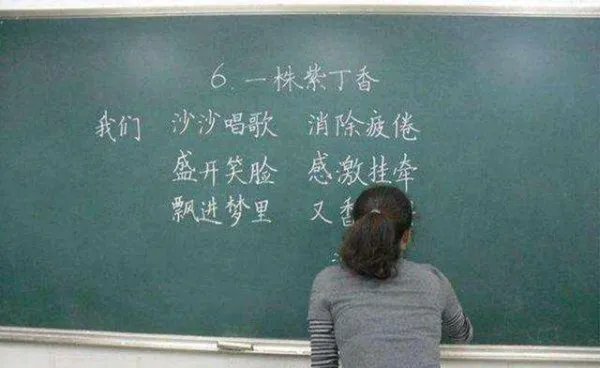 6.一株紫丁香
我们 沙沙唱歌 消除疲倦
盛开笑脸 感激挂牵
飘进梦里 又香